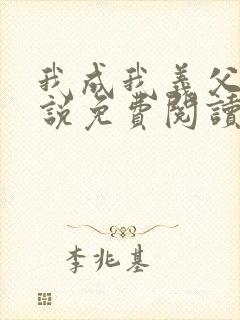 我成我義父
說免費閱讀
李兆基